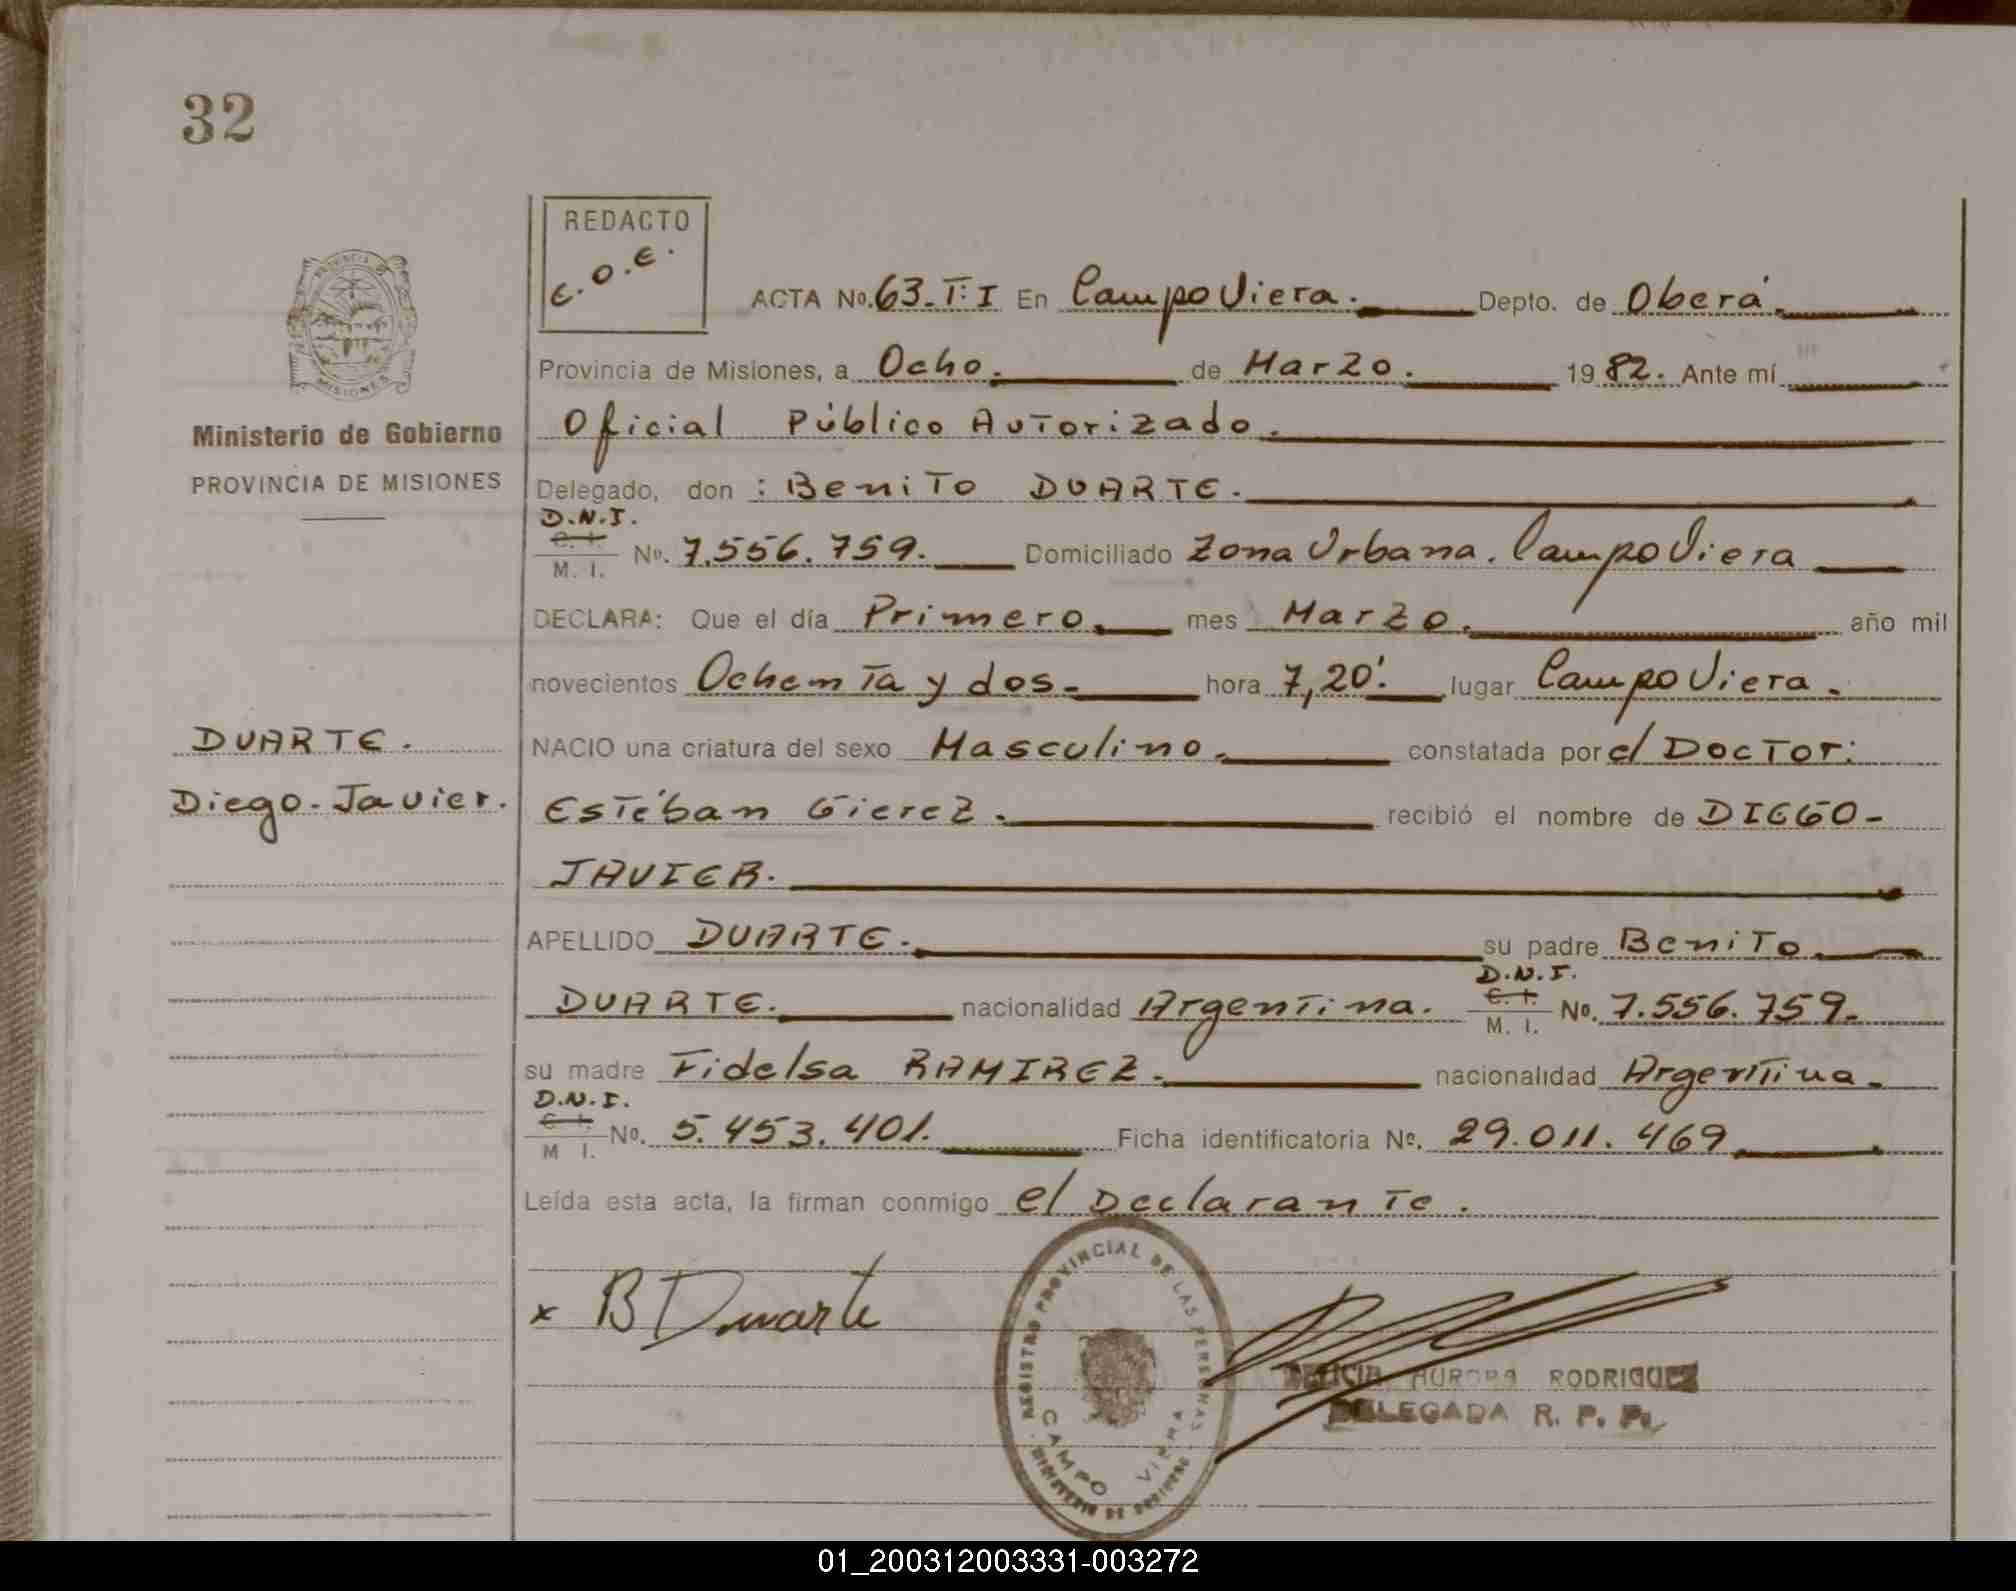 32
REDACTO
E.O.E.
PROVINCIA DE
MISIONES
Ministerio de Gobierno
PROVINCIA DE MISIONES
ACTA No. 63-T:I En Campo Viera. Depto. de Oberá.
Provincia de Misiones, a Ocho. de Marzo. 1982. Ante mí
Oficial Público Autorizado.
Delegado, don : Benito DUARTE.
D.N.I.
C. I.
M. I. No. 7.556.759. Domiciliado Zona Urbana. Campo Viera
DECLARA: Que el día Primero. mes Marzo. año mil
novecientos Ochenta y dos- hora 7,20'. lugar Campo Viera.
DUARTE.
Diego-Javier.
NACIO una criatura del sexo Masculino. constatada por el Doctor:
Estéban Gierez. recibió el nombre de DIEGO-
JAVIER.
APELLIDO DUARTE. su padre Benito
DUARTE. nacionalidad Argentina. D.N.I.
C. I.
M. I. No. 7.556.759.
su madre Fidelsa RAMIREZ. nacionalidad Argentina.
D.N.I.
C. I.
M I. No. 5.453.401. Ficha identificatoria No. 29.011.469
Leída esta acta, la firman conmigo el Declarante.
x B Duarte
REGISTRO PROVINCIAL DE LAS PERSONAS
CAMPO VIERA
MINISTERIO DE GOBIERNO
AURORA RODRIGUEZ
DELEGADA R. P. P.
01_200312003331-003272